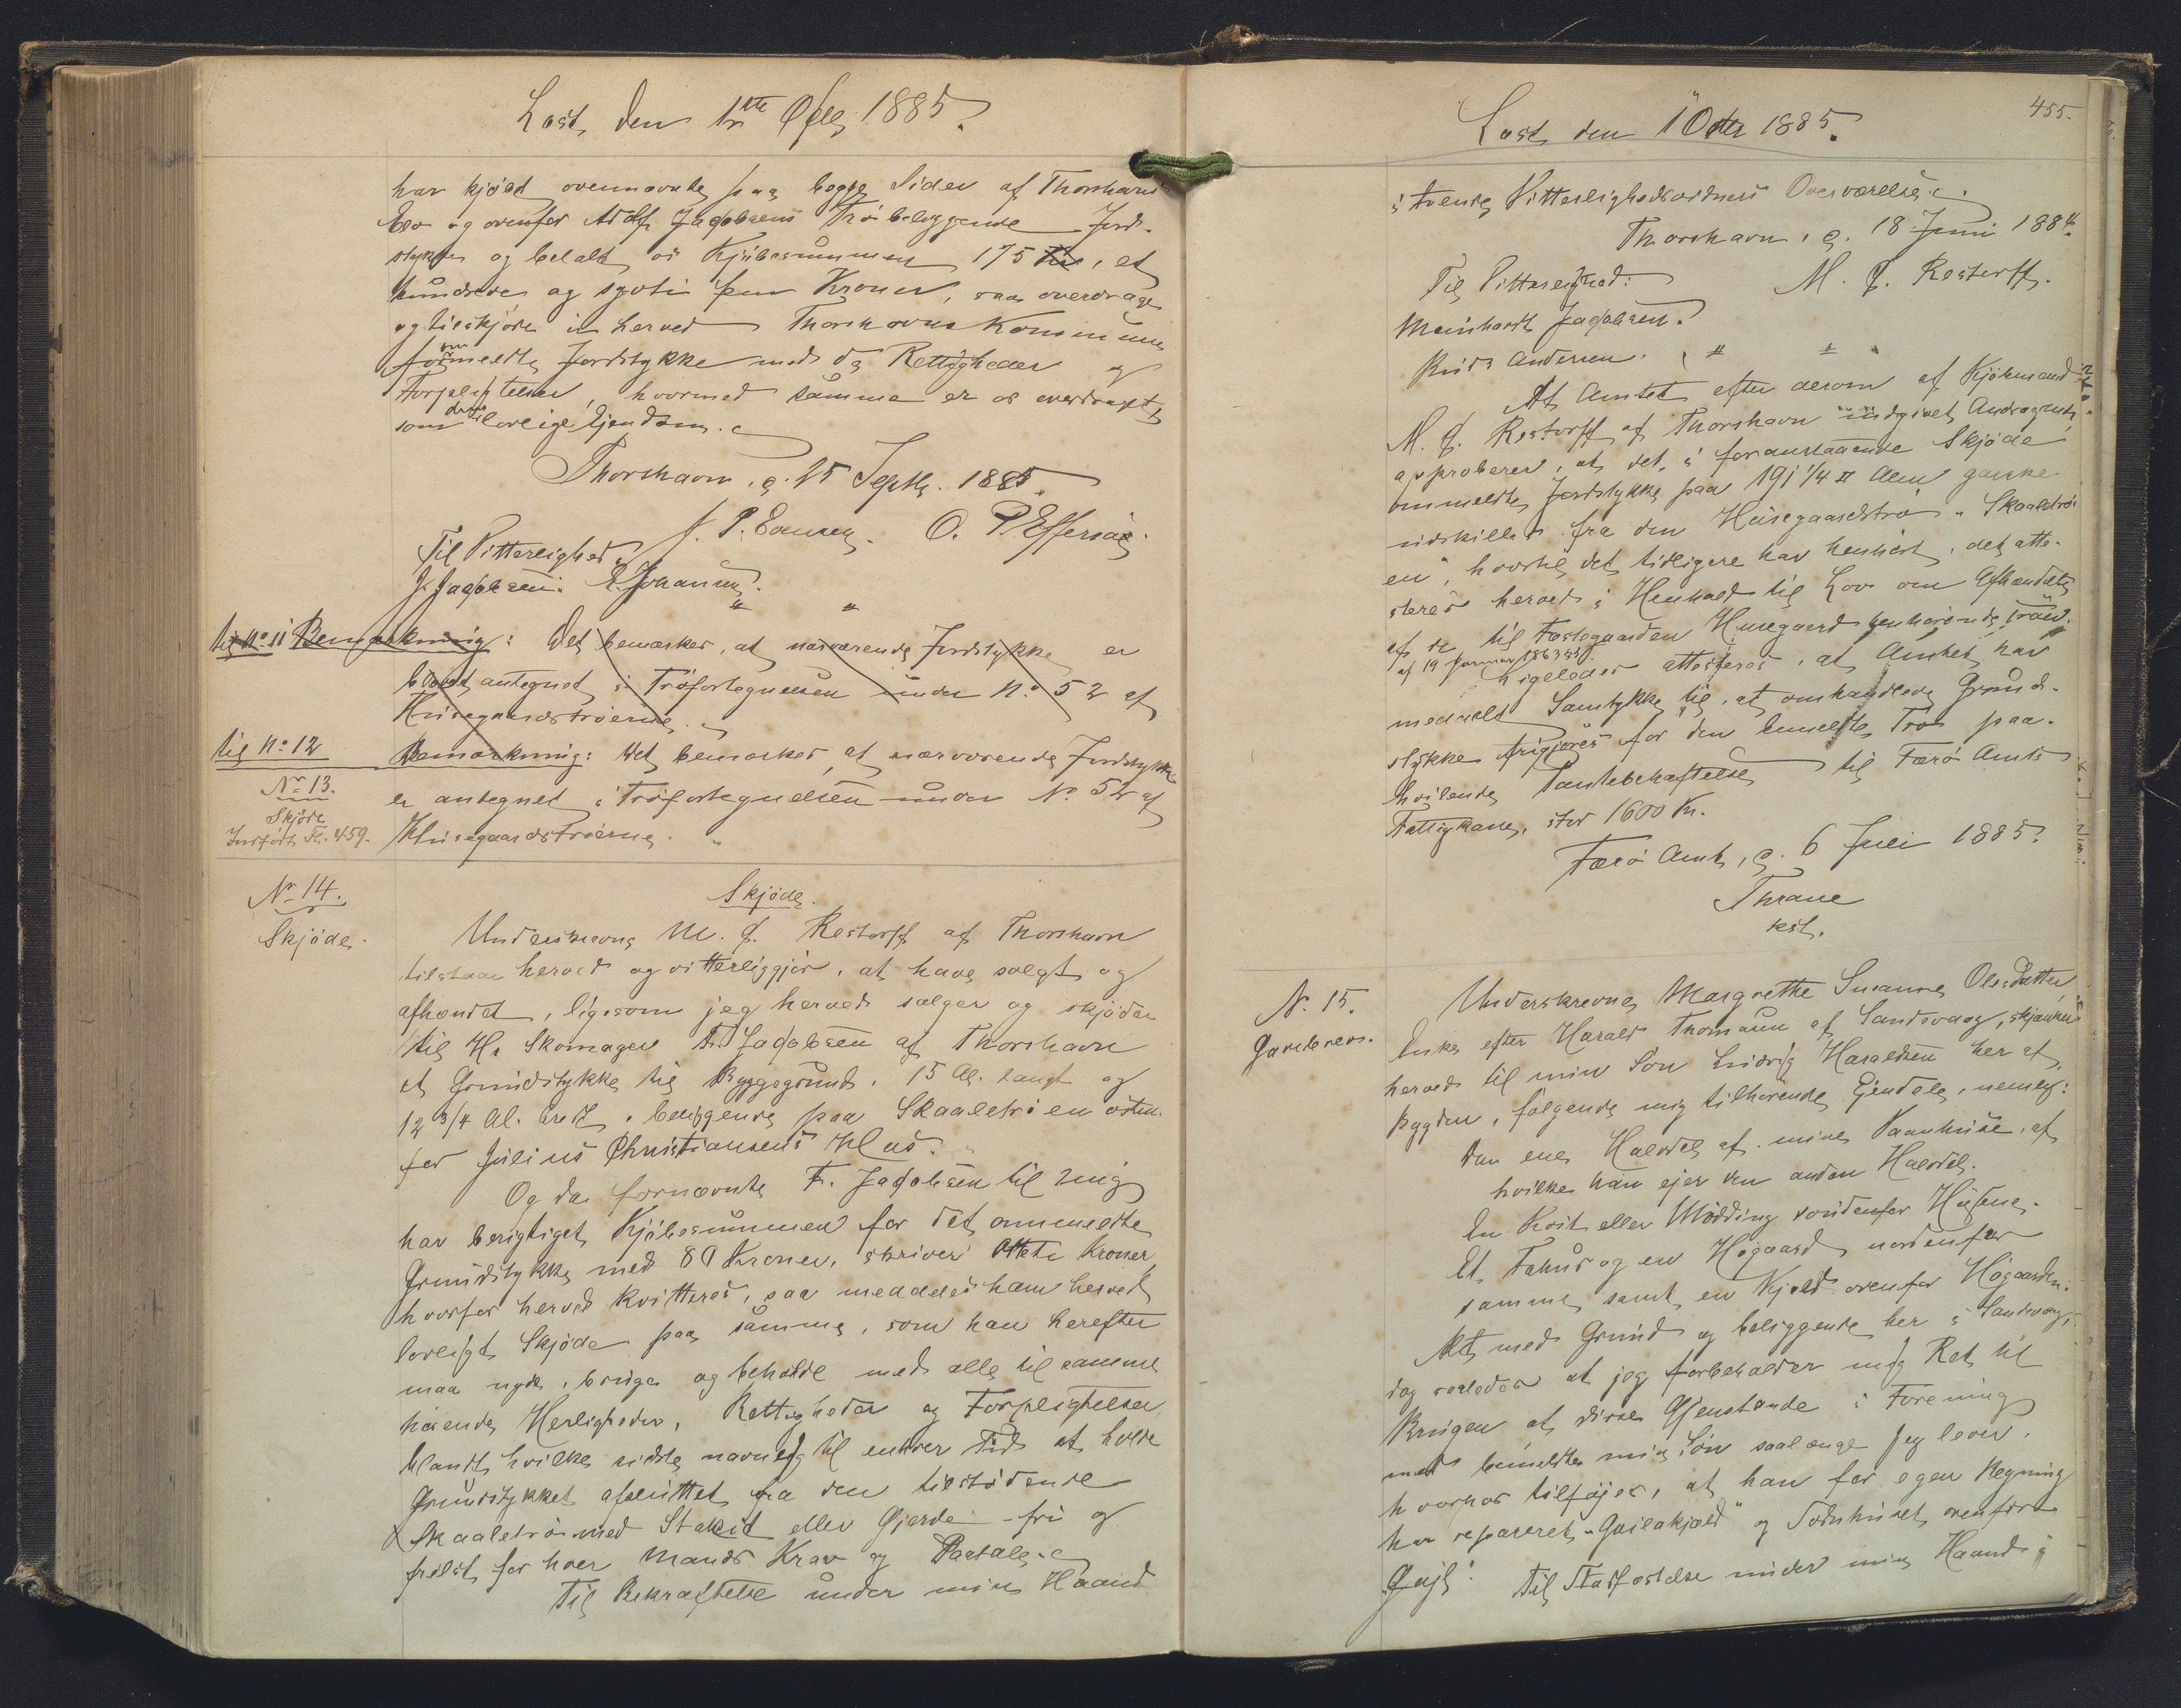 Læst, den 1ste Octbr 1885.
har kjøbt ovennævnte paa begge Sider af Thorshavns
Elv og ovenfor Adolf Jagobsens Trø beliggende Jord-
stykke og betalt os Kjøbesummen 175 Kr, et
hundrede og syvti fem Kroner, saa overdrage
og tilskjøde vi herved Thorshavns Kommune
ommeldte Jordstykke med de Rettigheder og
Forpligtelser, hvormed samme er os overdraget,
som dens lovlige Ejendom.
Thorshavn, d. 25 Septbr. 1885.
J. P. Evensen. O. P. Effersøe.
Til Vitterlighed
J. Jagobsen. E. Johannesen.
til No. 11 Bemærkning: Det bemærkes, at nærværende Jordstykke er
blevet antegnet i Trøfortegnelsen under No. 52 af
Husegaardstrøerne.
til No. 12 Bemærkning: Det bemærkes, at nærværende Jordstykke
er antegnet i Trøfortegnelsen under No. 52 af
Husegaardstrøerne.
No. 13.
Skjøde
Indført Fl. 459.
No. 14.
Skjøde.
Skjøde.
Underskrevne M. C. Restorff af Thorshavn
tilstaar herved og vitterliggjør, at have solgt og
afhændet, ligesom jeg herved sælger og skjøder
til Hr Skomager F. Jagobsen af Thorshavn
et Grundstykke til Byggegrund, 15 Al. langt og
12 3/4 Al. bredt, beliggende paa Skaaletrøen østen-
for Julius Christiansens Hus.
Og da fornævnte F. Jagobsen til mig
har berigtiget Kjøbesummen for det ommeldte
Grundstykke med 80 Kroner, skriver Otteti Kroner,
hvorfor herved kvitteres, saa meddeles ham herved
lovligt Skjøde paa samme, som han herefter
maa nyde, bruge og beholde med alle til samme
hørende Herligheder, Rettigheder og Forpligtelser
blandt hvilke sidste navnlig til enhver Tid at holde
Grundstykket afsluttet fra den tilstødende
Skaaletrø med Stakit eller Gjerde - fri og
frelst for hver Mands Krav og Paatale.
Til Bekræftelse under min Haand
455.
Læst, den 1 Octbr 1885.
i tvende Vitterlighedsvidners Overværelse.
Thorshavn, d. 18 Juni 1884.
Til Vitterlighed: M. C. Restorff.
Meinhardt Jagobsen.
Knud Andersen.
At Amtet efter derom af Kjøbmand
M. C. Restorff af Thorshavn indgivet Andragende
approberer, at det i foranstaaende Skjøde
ommeldte Jordstykke paa 191 1/4 □ Alen ganske
udskilles fra den Husegaardstrø "Skaaletrø-
en", hvortil det tidligere har henhørt, det atte-
steres herved i Henhold til Lov om Afhændelse
af de til Fæstegaarden Husegaard henhørende Trøer
af 19 Januar 1863
Ligeledes attesteres, at Amtet har
meddelt Samtykke til, at omhandlede Grund-
stykke frigjøres for den bemeldte Trø paa-
hvilende Pantebehæftelse til Færø Amts
Fattigkasse, stor 1600 Kr.
Færø Amt, d. 6 Juli 1885.
Thrane
kst.
N. 15.
Gavebrev.
Underskrevne Margrethe Susanne Olesdatter,
Enke efter Harald Thomasen af Sandevaag, skjænker
herved til min Søn Ludvig Haraldsen her af
Bygden, følgende mig tilhørende Ejendele, nemlig:
Den ene Halvdel af mine Vaanhuse, af
hvilke han ejer den anden Halvdel.
En Kvit eller Mødding søndenfor Husene.
Et Fahus og en Høgaard nordenfor
samme, samt en Kjald ovenfor Høgaarden.
Alt med Grund og beliggende her i Sandevaag,
dog saaledes at jeg forbeholder mig Ret til
Brugen af disse Gjenstande i Forening
med bemeldte min Søn saalænge jeg lever,
hvorhos tilføjes, at han for egen Regning
har repareret "Geilakjald" og Sodnhuset ovenfor
"Gejl".
Til Stadfæstelse under min Haand i